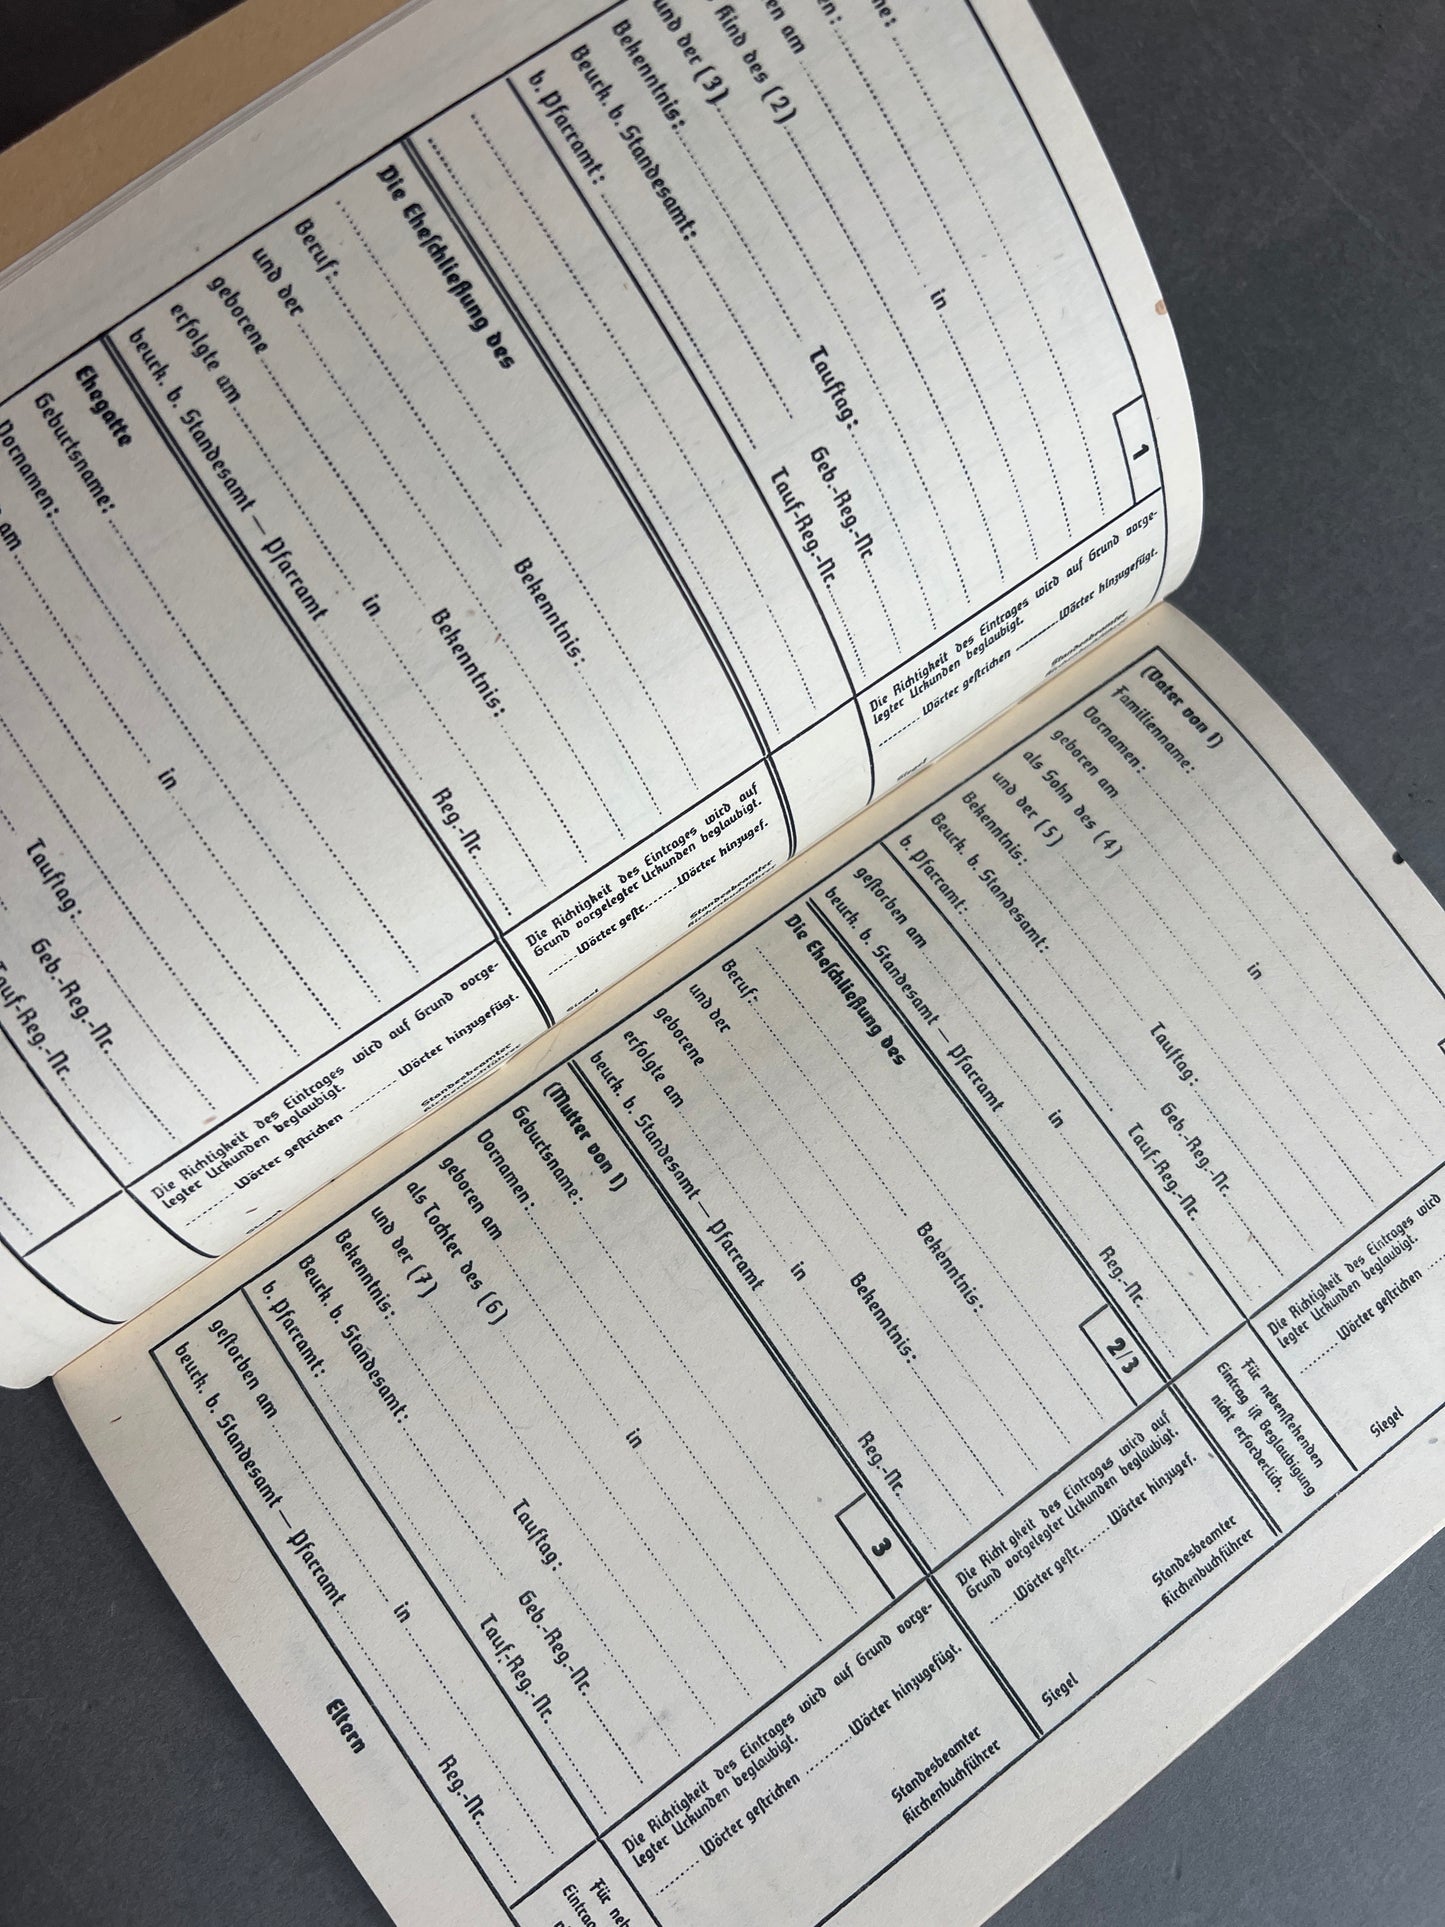 1
und der (3)
Kind des (2)
Bekenntnis:
Beurk. b. Standesamt:
b. Pfarramt:
in
Tauftag:
Geb.-Reg.-Nr.
Tauf-Reg.-Nr.
Die Richtigkeit des Eintrages wird auf Grund vorge-
legter Urkunden beglaubigt.
Wörter gestrichen Wörter hinzugefügt.
Standesbeamter
Siegel
Die Eheschließung des
Beruf: Bekenntnis:
und der
geborene Bekenntnis:
erfolgte am in
beurk. b. Standesamt — Pfarramt Reg.-Nr.
Die Richtigkeit des Eintrages wird auf
Grund vorgelegter Urkunden beglaubigt.
Wörter gestr. Wörter hinzugef.
Standesbeamter
Kirchenbuchführer
Siegel
Ehegatte
Geburtsname:
Vornamen:
am in
Tauftag:
Geb.-Reg.-Nr.
Tauf-Reg.-Nr.
Die Richtigkeit des Eintrages wird auf Grund vorge-
legter Urkunden beglaubigt.
Wörter gestrichen Wörter hinzugefügt.
Standesbeamter
Kirchenbuchführer
(Vater von 1)
Familienname:
Vornamen:
geboren am in
als Sohn des (4)
und der (5)
Bekenntnis: Tauftag:
Beurk. b. Standesamt: Geb.-Reg.-Nr.
b. Pfarramt: Tauf-Reg.-Nr.
Die Richtigkeit des Eintrages wird
legter Urkunden beglaubigt.
Wörter gestrichen
Siegel
gestorben am in
beurk. b. Standesamt — Pfarramt Reg.-Nr.
Für nebenstehenden
Eintrag ist Beglaubigung
nicht erforderlich.
Die Eheschließung des
2/3
Beruf: Bekenntnis:
und der
geborene Bekenntnis:
erfolgte am in
beurk. b. Standesamt — Pfarramt Reg.-Nr.
Die Richtigkeit des Eintrages wird auf
Grund vorgelegter Urkunden beglaubigt.
Wörter gestr. Wörter hinzugef.
Standesbeamter
Kirchenbuchführer
Siegel
(Mutter von 1)
3
Geburtsname:
Vornamen:
geboren am in
als Tochter des (6)
und der (7)
Bekenntnis: Tauftag:
Beurk. b. Standesamt: Geb.-Reg.-Nr.
b. Pfarramt: Tauf-Reg.-Nr.
Die Richtigkeit des Eintrages wird auf Grund vorge-
legter Urkunden beglaubigt.
Wörter gestrichen Wörter hinzugefügt.
Standesbeamter
Kirchenbuchführer
gestorben am in
beurk. b. Standesamt — Pfarramt Reg.-Nr.
Für
Eltern